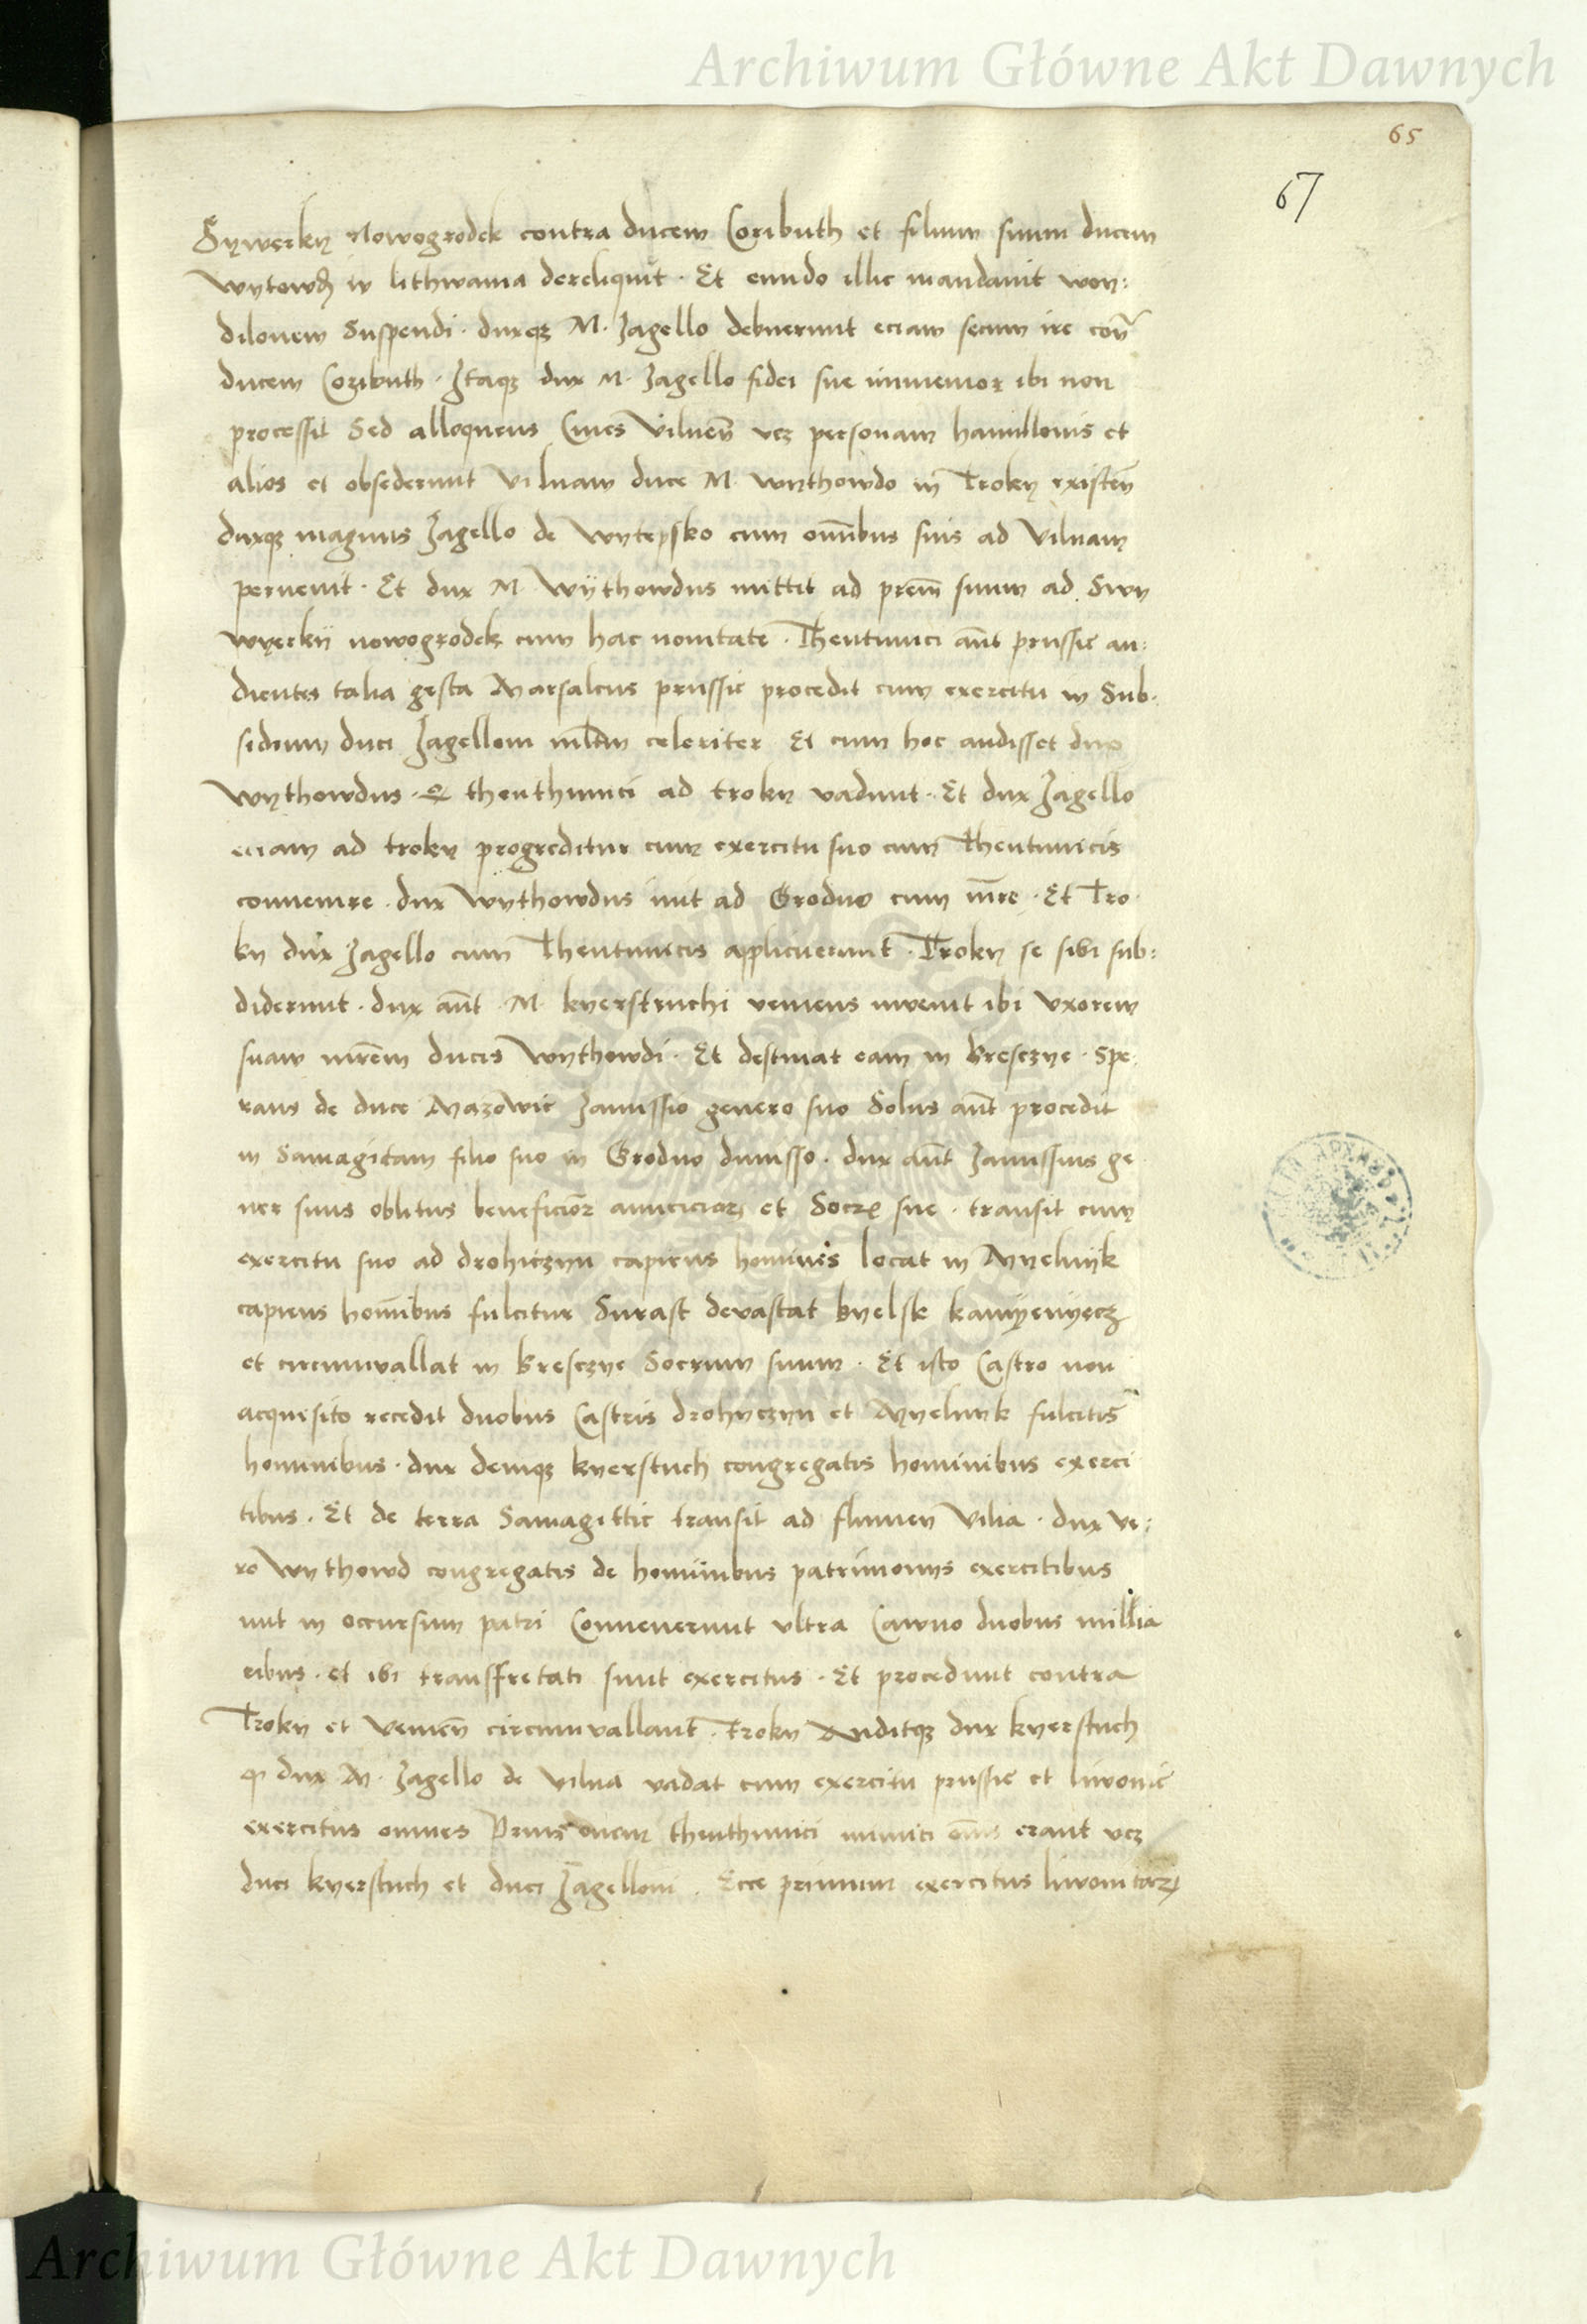 Archiwum Główne Akt Dawnych
65
67
Sywerky Nowogrodek contra ducem Coributh et filium suum ducem
Wytowd in lithwania dereliquit · Et eundo illic mandavit won:
dilonem Suspendi · duxqz M. Jagello debuerunt eciam secum ire cont
ducem Coributh · Itaqz dux M. Jagello fidei sue immemor ibi non
processit Sed alloquens Cives Vilnen vcz personam hanulonis et
alios et obsederunt Vilnam duce M. wythowdo in Troky existen
duxqz magnus Jagello de Wytepsko cum omibus suis ad Vilnam
pervenit · Et dux M. Wythowdus mittit ad prem suum ad Swy
wyerky nowogrodek cum hac novitate · Theutunici aut prussie au:
dientes talia gesta Marsalcus prussie procedit cum exercitu in Sub·
sidium duci Jagelloni mltm celeriter Et cum hoc audisset dux
Wythowdus · q theuthunici ad troky vadunt · Et dux Jagello
eciam ad troky progreditur cum exercitu suo cum Theutunicis
convenire · dux Wythowdus ivit ad Grodno cum mre · Et Tro·
ky dux Jagello cum Theutunicis applicuerunt · Troky se sibi sub:
diderunt · dux aut · M. kyerstuchi veniens invenit ibi Uxorem
suam mrem ducis Wythowdi · Et destinat eam in Bresczye · Spe:
rans de duce Mazowie Janussio genero suo Solus aut procedit
in Samagitam filio suo in Grodno dimisso · dux aut Janussius ge
ner suus oblitus beneficior amicicior et Socre sue · transit cum
exercitu suo ad drohiczyn capiens homines locat in Myelnyk
capiens homibus fulcitur Surasz devastat byelsk kamyenyecz
et circumvallat in bresczye Socrum suum · Et isto Castro non
acquisito recedit duobus Castris drohyczyn et Myelnyk fulcitis
hominibus · dux deniqz kyerstuch congregatis hominibus exerci
tibus · Et de terra Samagittie transit ad flumen Vilia · dux ve:
ro Wythowd congregatis de hominibus patrimonys exercitibus
ivit in occursum patri Convenerunt ultra Cawno duobus millia
ribus · et ibi transfretati sunt exercitus · Et procedunt contra
Troky et venien circumvallant · Troky Auditqz dux kyerstuch
q dux M. Jagello de Vilna vadat cum exercitu prussie et livonie
exercitus omnes Prius theuthunici inimici erant vcz
duci kyerstuch et duci Jagelloni · Ecce primum exercitus livonitarz
Archiwum Główne Akt Dawnych